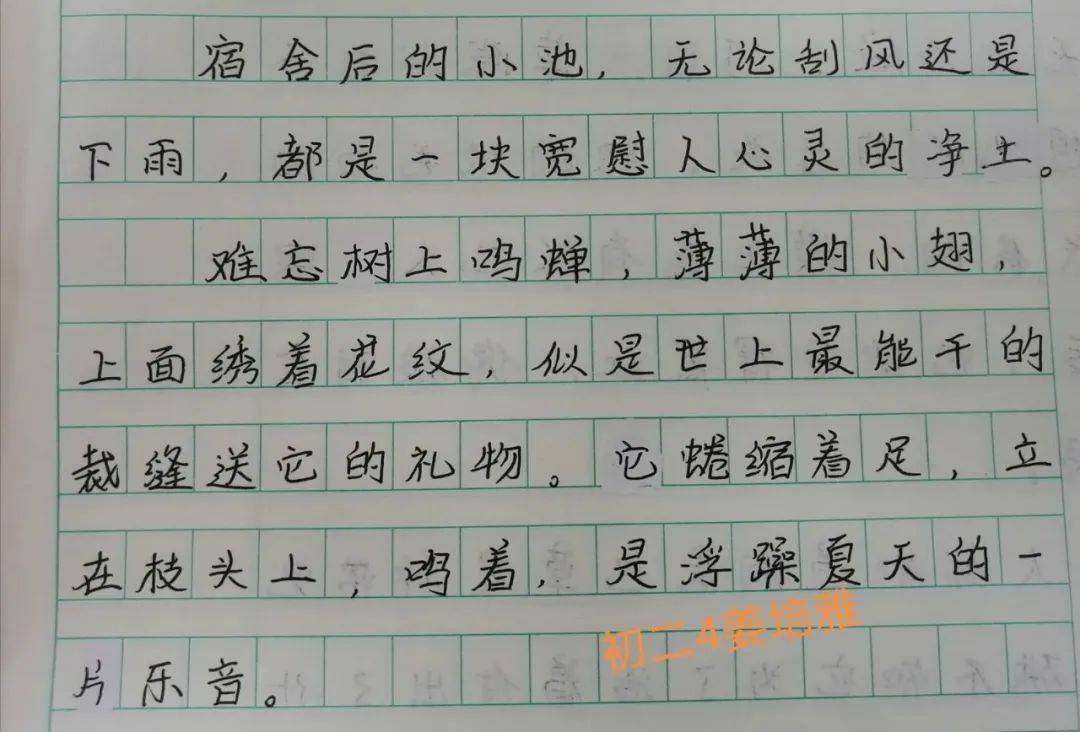 宿舍后的小池，无论刮风还是
下雨，都是一块宽慰人心灵的净土。
难忘树上鸣蝉，薄薄的小翅，
上面绣着花纹，似是世上最能干的
裁缝送它的礼物。它蜷缩着足，立
在枝头上，鸣着，是浮躁夏天的一
初二4姜培雅
片乐音。